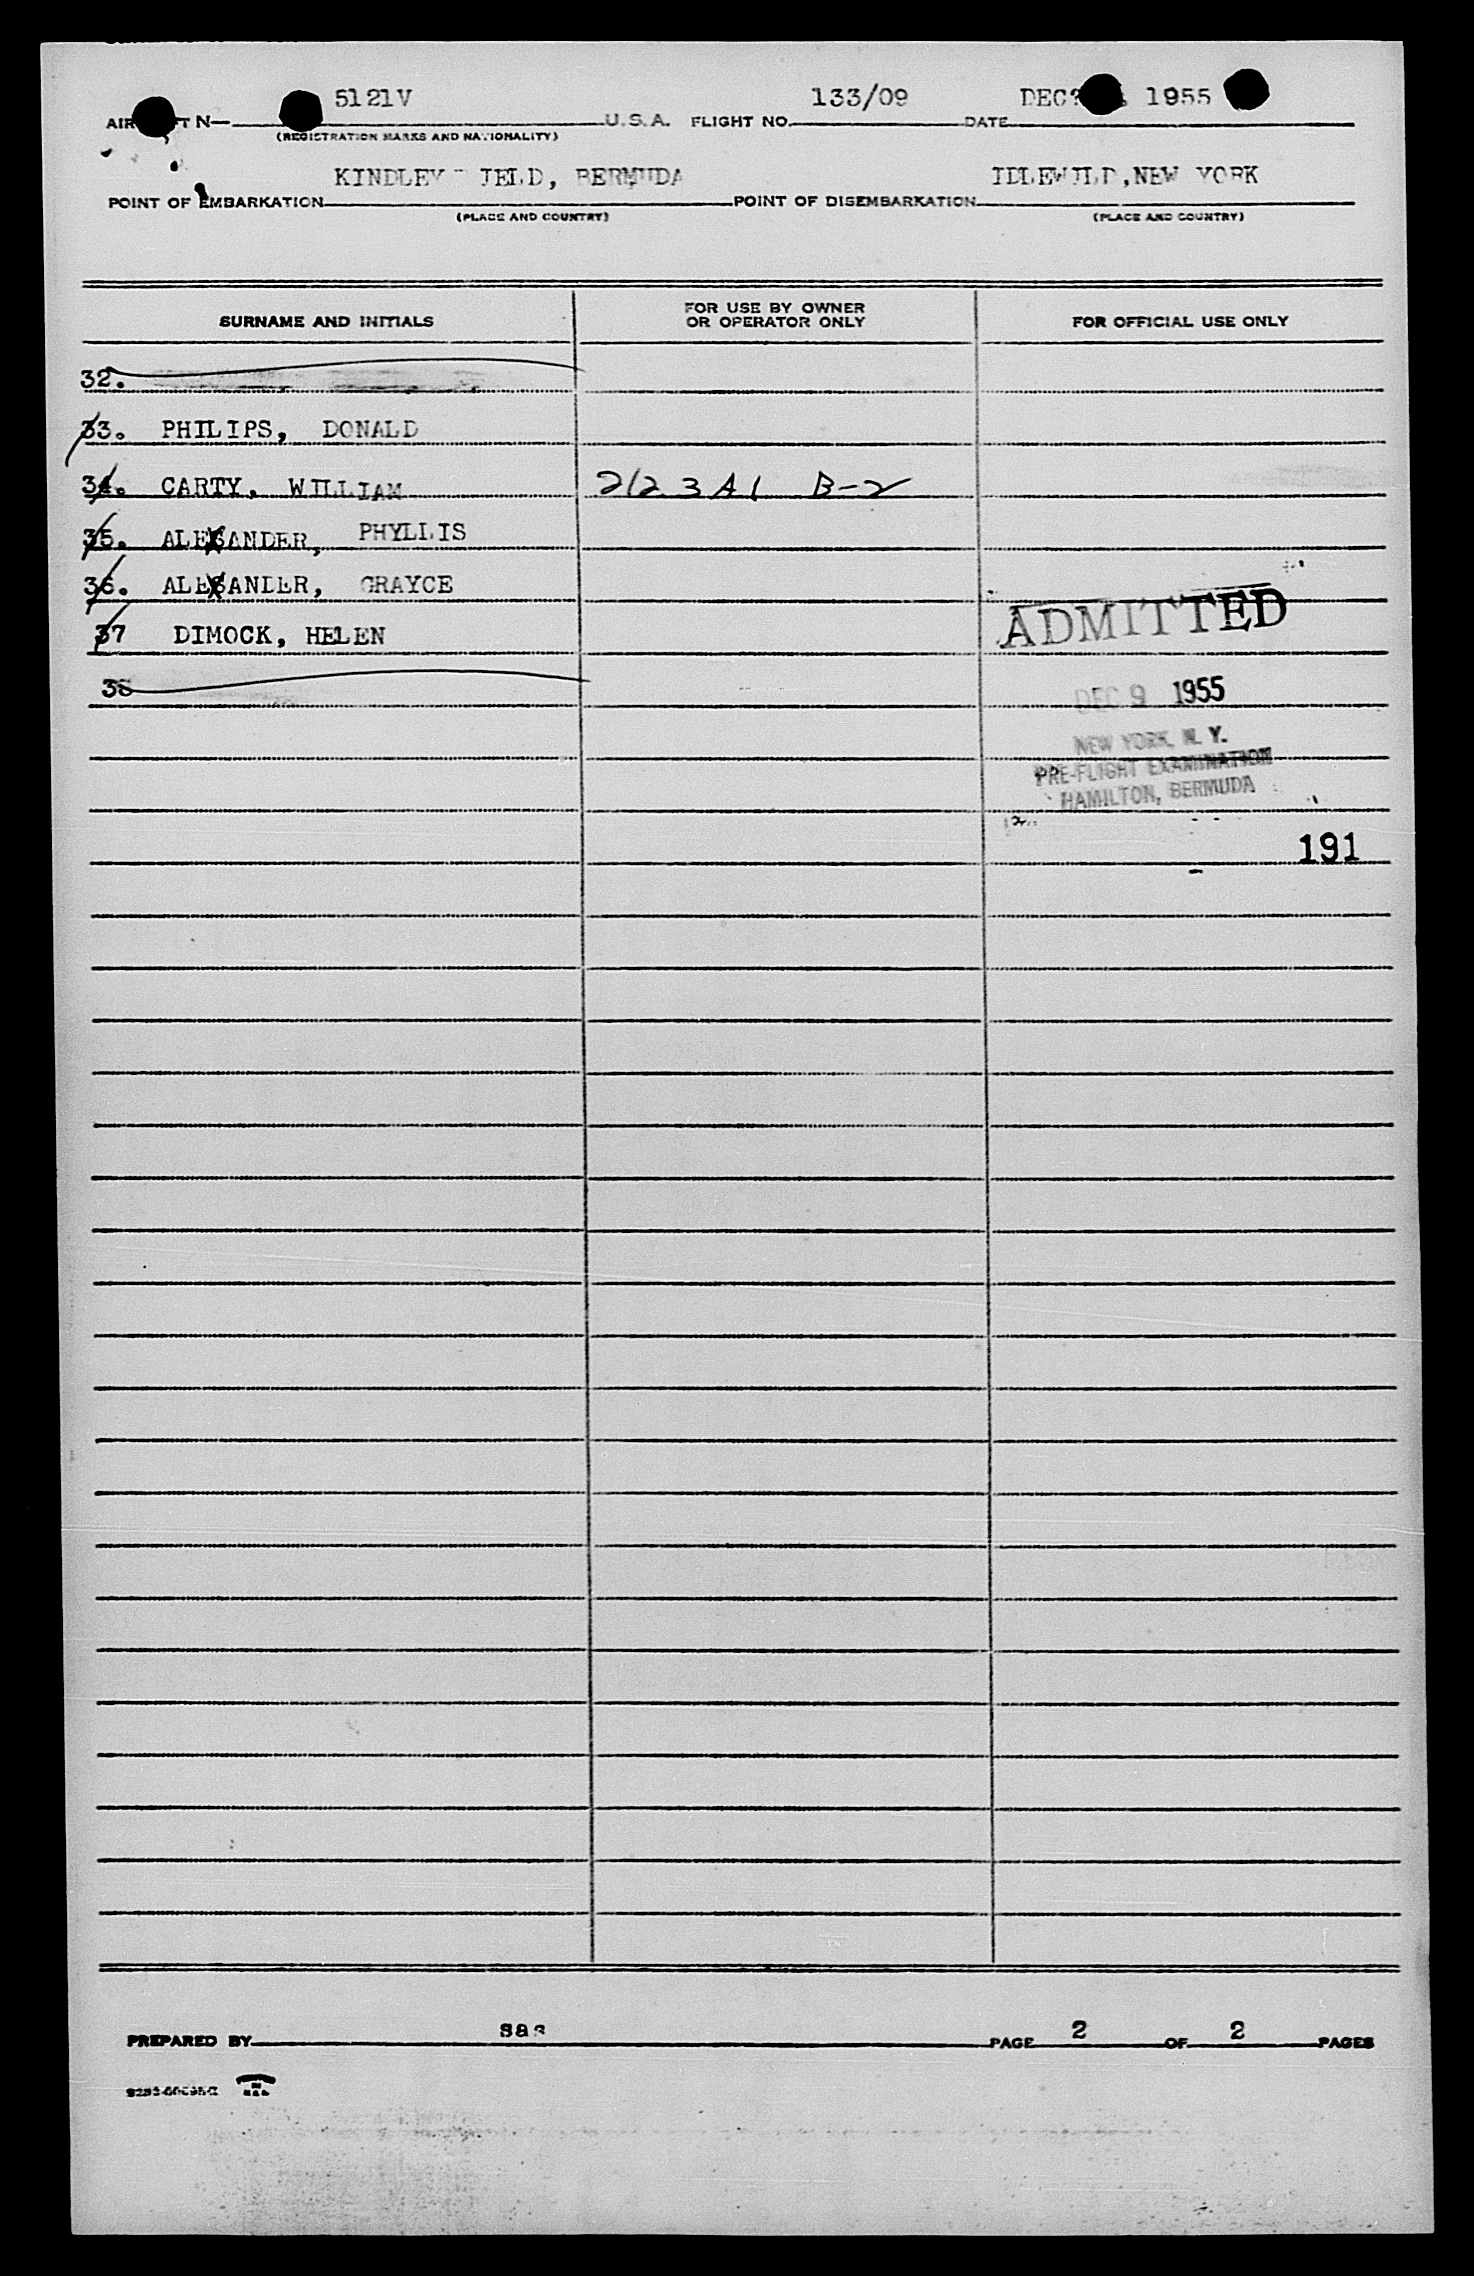 5121V 133/09 DEC 1955
N— U.S.A. FLIGHT NO. DATE
(REGISTRATION MARKS AND NATIONALITY)
KINDLEY FIELD, BERMUDA IDLEWILD, NEW YORK
POINT OF EMBARKATION POINT OF DISEMBARKATION
(PLACE AND COUNTRY) (PLACE AND COUNTRY)
SURNAME AND INITIALS FOR USE BY OWNER OR OPERATOR ONLY FOR OFFICIAL USE ONLY
32.
33. PHILIPS, DONALD
34. CARTY, WILLIAM 212 3 A1 B-2
35. ALEXANDER, PHYLLIS
36. ALEXANDER, GRAYCE
37 DIMOCK, HELEN
ADMITTED
38
DEC 9 1955
NEW YORK, N. Y.
PRE-FLIGHT EXAMINATION
HAMILTON, BERMUDA
191
sas
PREPARED BY PAGE 2 OF 2 PAGES